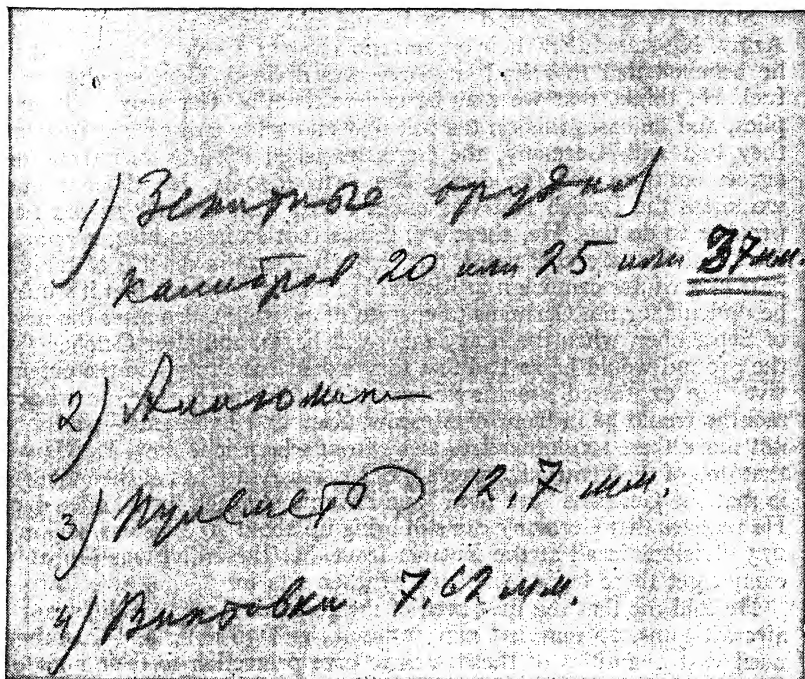 1) Зенитные орудия
калибров 20 или 25 или 37 мм.
2) Алюмини
3) Пулемет 12,7 мм.
4) Винтовки 7,62 мм.